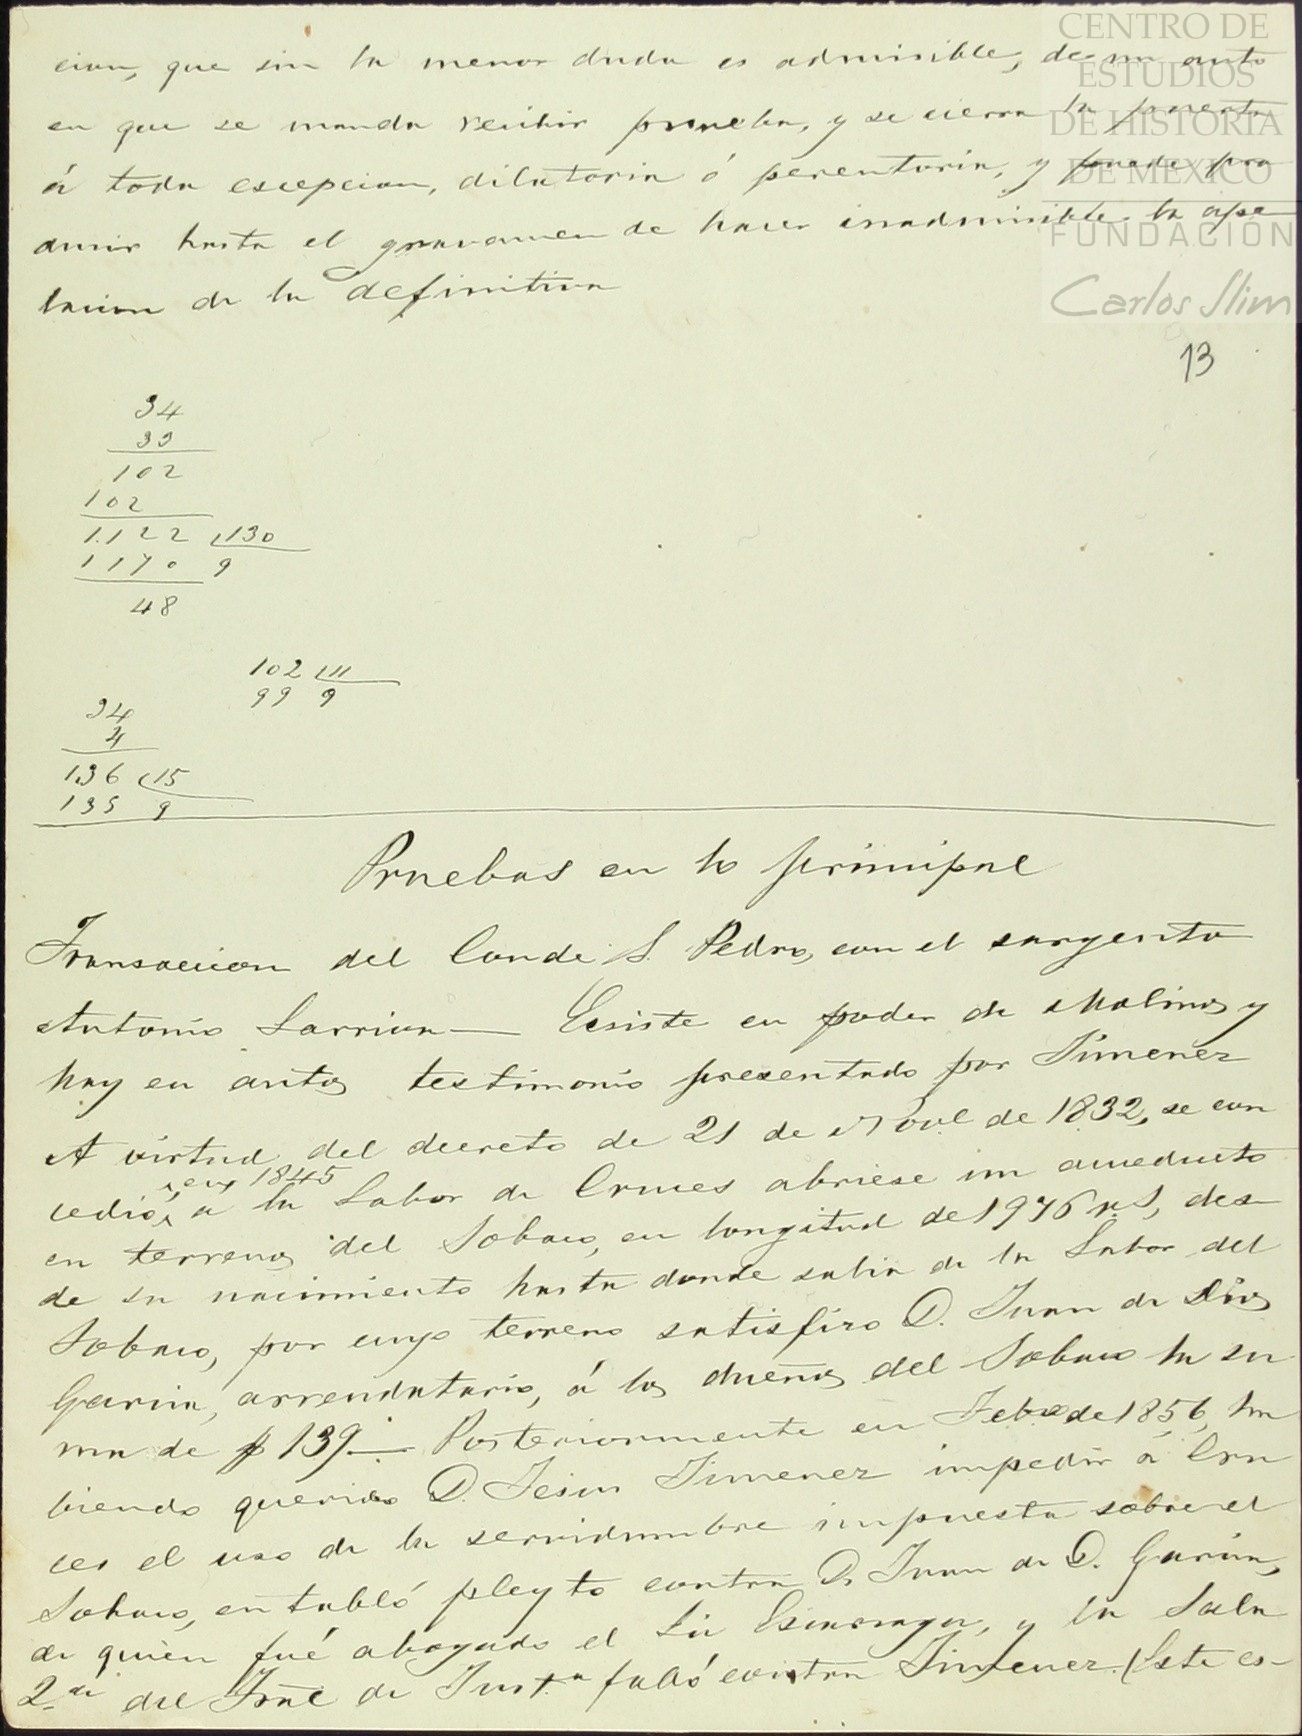 CENTRO DE
ESTUDIOS
DE HISTORIA
DE MEXICO
FUNDACIÓN
Carlos Slim
cion, que sin la menor duda es admisible, de un auto
en que se manda recibir prueba, y se cierra la puerta
á toda escepcion, dilatoria ó perentoria, y puede pro
ducir hasta el gravamen de hacer inadmisible la ape
lacion de la definitiva
13
34
33
102
102
1.122 130
1170 9
48
102 11
99 9
34
4
1.36 15
135 9
Pruebas en lo principal
Transaccion del Conde S. Pedro, con el sargento
Antonio Larriva — Ecsiste en poder de Molinos y
hay en autos testimonio presentado por Jimenez
A virtud del decreto de 21 de Nove de 1832, se con
cedió, en 1845 a la Labor de Cruces abriese un acueducto
en terrenos del Sobaco, en longitud de 1976 vs, des
de su nacimiento hasta donde salia de la Labor del
Sobaco, por cuyo terreno satisfizo D. Juan de Dios
Garcia, arrendatario, á los dueños del Sobaco la su
ma de $ 139 — Posteriormente en Febo de 1856, ha
biendo querido D. Jesus Jimenez impedir á Cru
ces el uso de la servidumbre impuesta sobre el
Sobaco, entabló pleyto contra D. Juan de D. Garcia,
de quien fué abogado el Lic Escarcega, y la Sala
2.ª del Tral de Just.ª falló contra Jimenez. (Este es-